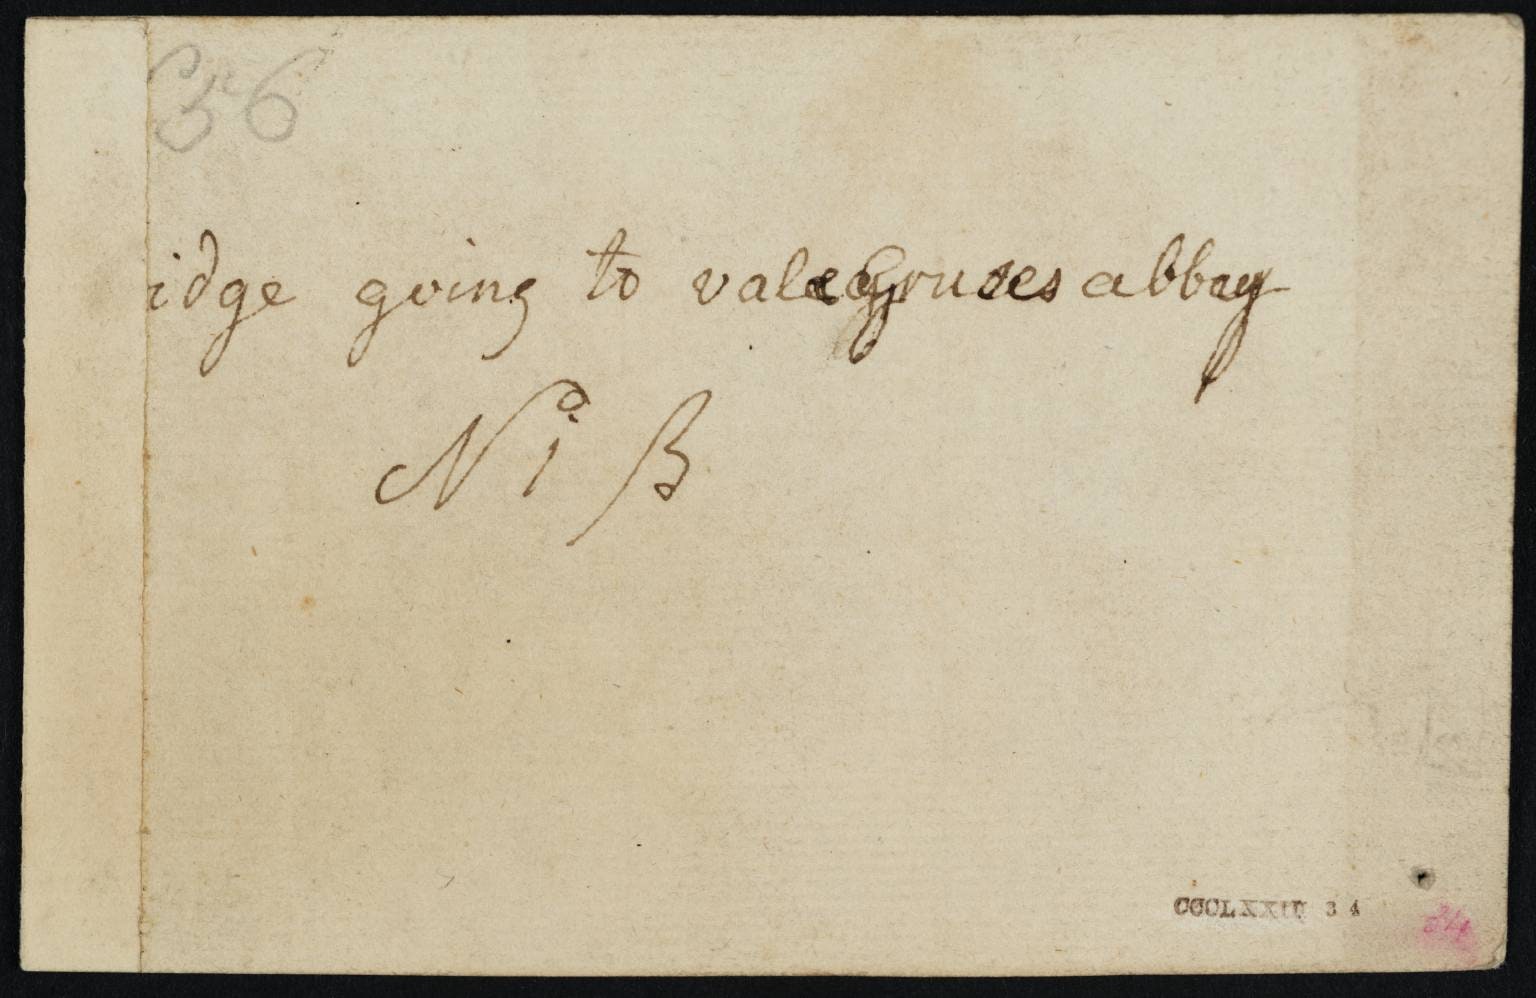 36
idge going to valeCruses abbey
N 1 B
CCCLXXIII 34
34